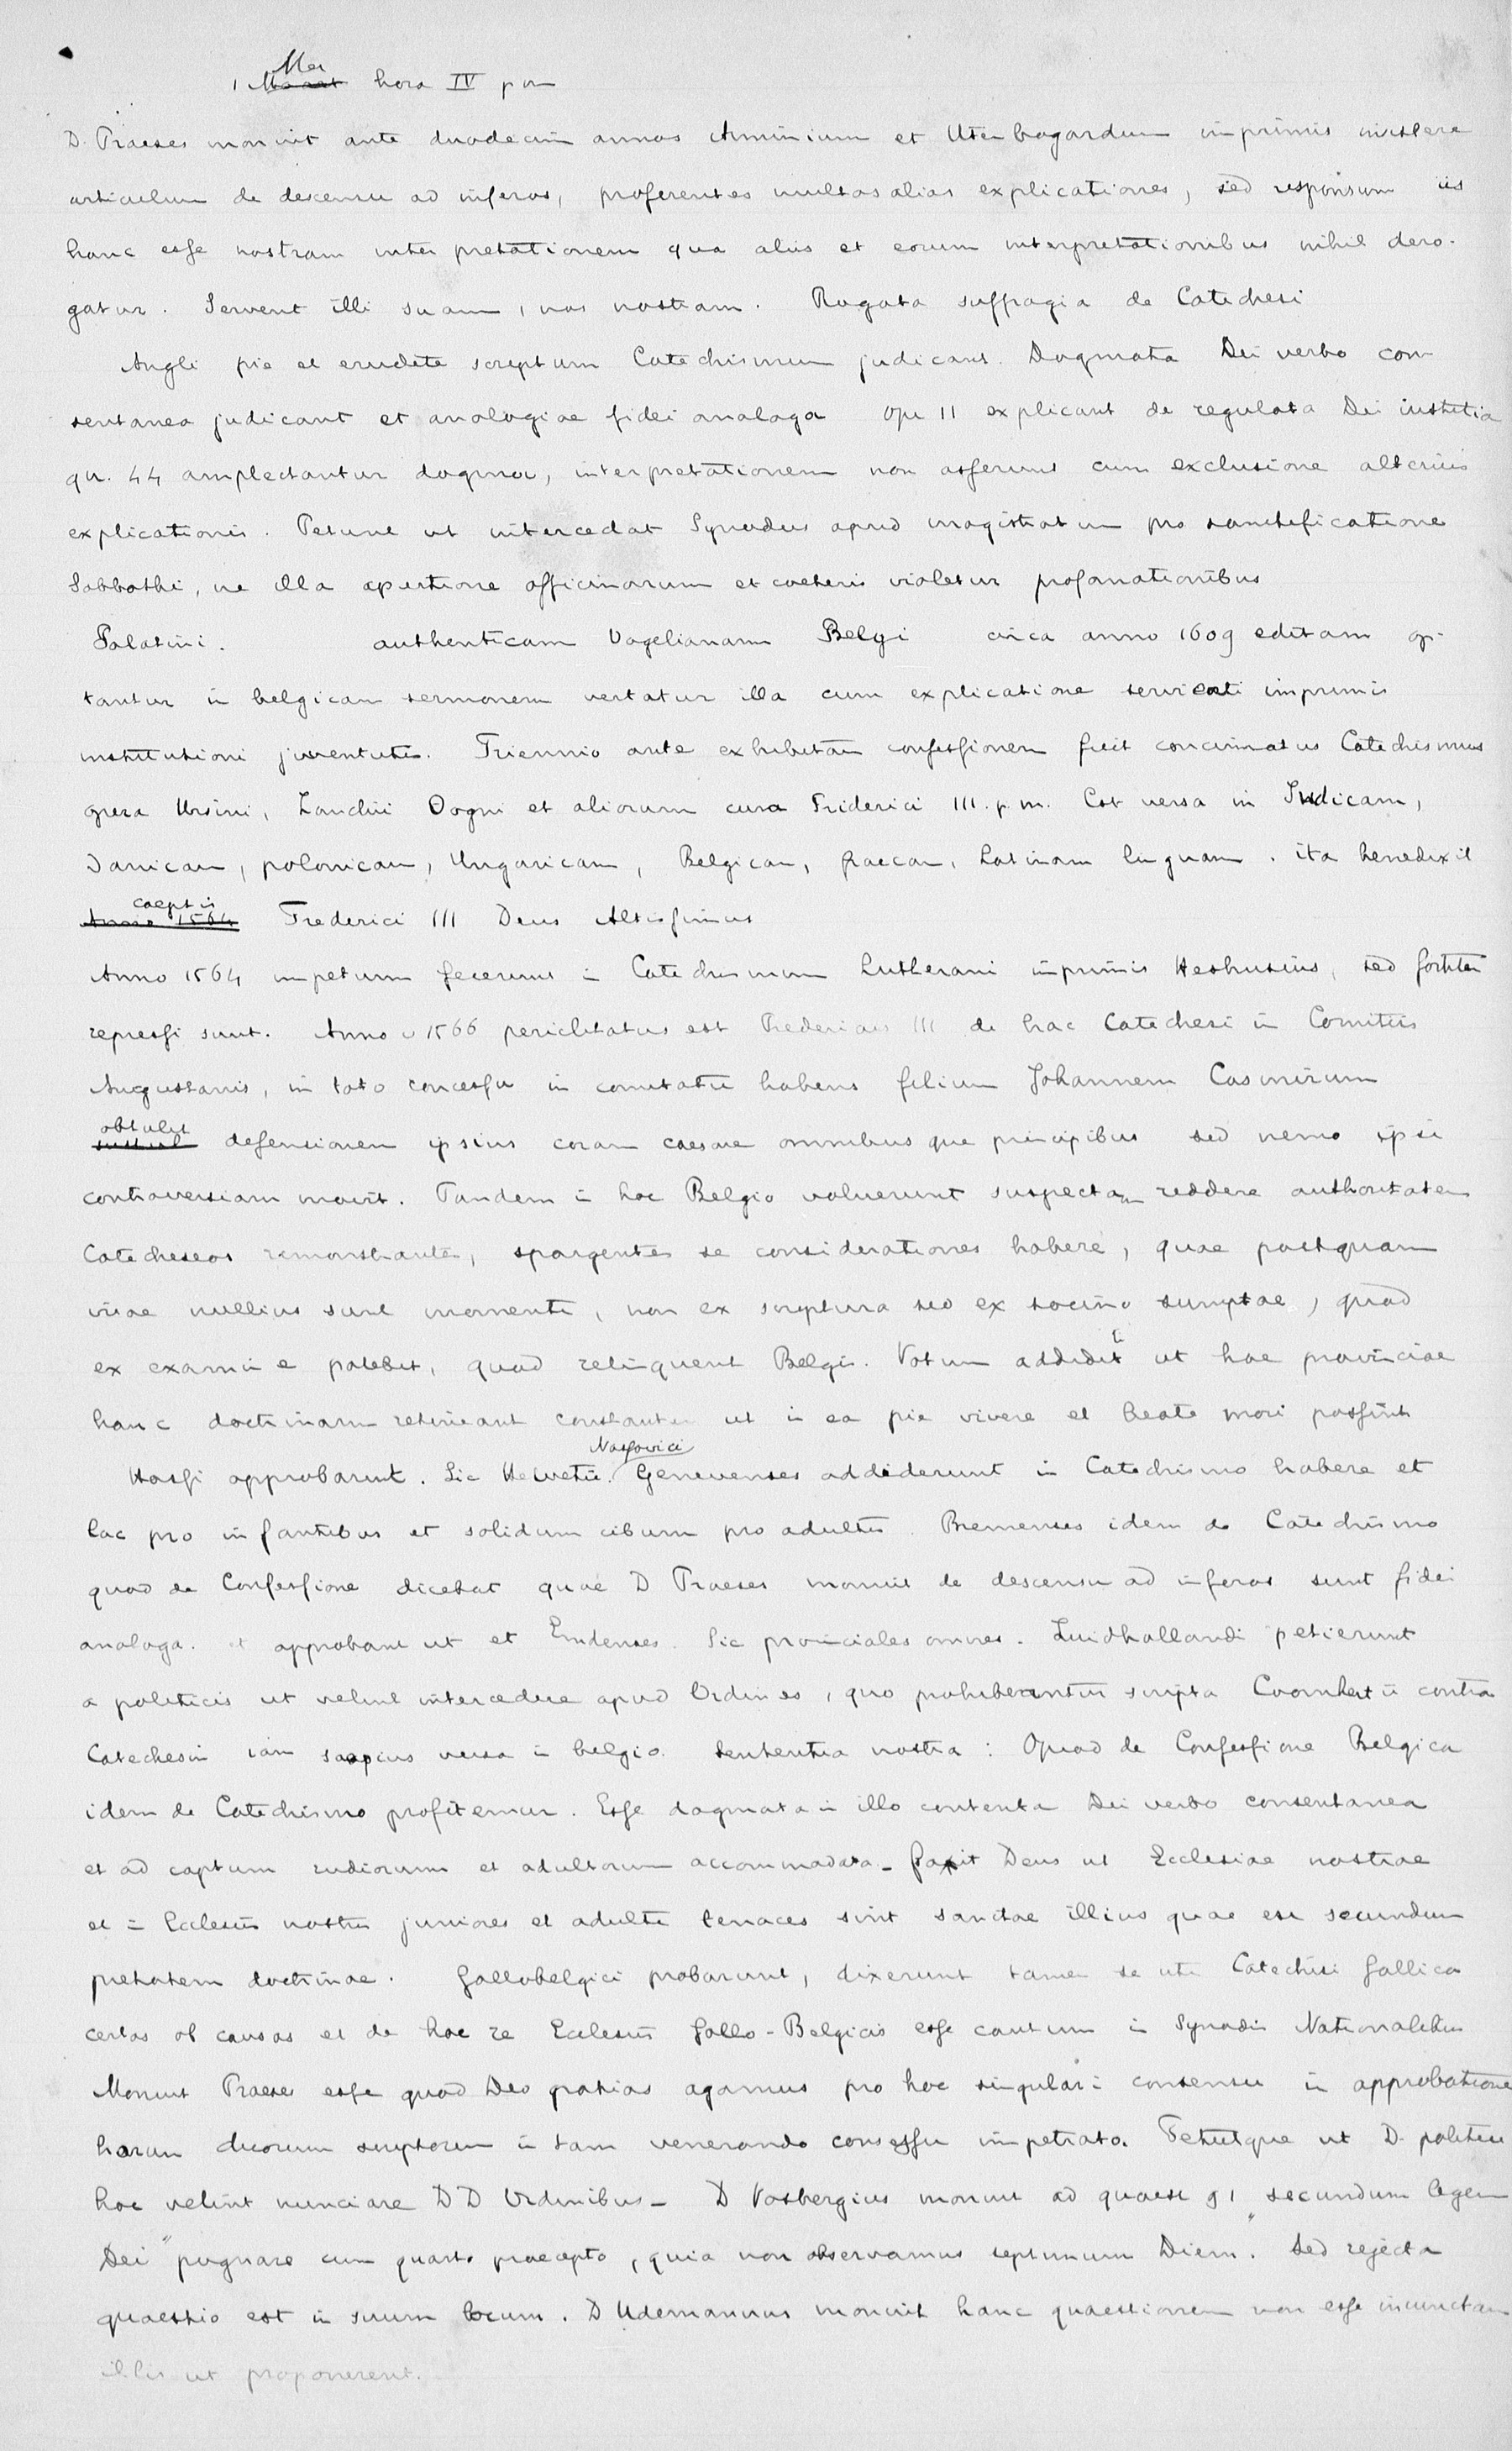 1 Mai hora IV pm
D. Praeses monuit ante duodecim annos Arminium et Utenbogardum imprimis incitare
articulum de descensu ad inferos, proferentes multas alias explicationes, sed responsum iis
hanc esse nostram interpretationem qua aliis et eorum interpretationibus nihil dero-
gatur. Servent illi suam, nos nostram. Rogata suffragia de Catechesi
Angli pie et erudite scriptum Catechismum judicant. Dogmata Dei verbo con
sentanea judicant et analogiae fidei analoga qu 11 explicant de regulata Dei iustitia
qu. 44 amplectantur dogma, interpretationem non asserunt cum exclusione alterius
explicationis. Petunt ut intercedat Synodus apud magistratum pro sanctificatione
Sabbathi, ne illa apertione officinarum et caeteris violetur profanationibus
Palatini. authenticam Vogelianam Belgi circa anno 1609 editam op-
tantur in belgicam sermonem vertatur illa cum explicatione servienti imprimis
institutioni juventutis. Triennio ante exhibitam confessionem fuit concinnatus Catechismus
opera Ursini, Zanchii Oogni et aliorum cura Friderici III. p.m. Est versa in Indicam,
Danicam, polonicam, Ungaricam, Belgicam, graecam, Latinam linguam. ita benedixit
Anno 1564 caeptis Frederici III Deus Altissimus
Anno 1564 impetum fecerunt in Catechismum Lutherani imprimis Heshusius, sed fortiter
repressi sunt. Anno 1566 periclitatus est Fredericus III de hac Catechesi in Comitiis
Augustanis, in toto concessu in comitatu habens filium Johannem Casimirum
obtulit defensionem ipsius coram caesare omnibusque principibus sed nemo ipsi
controversiam movit. Tandem in hoc Belgio voluerunt suspectam reddere authoritatem
Catecheseos remonstrantes, spargentes se considerationes habere, quae postquam
visae nullius sunt momenti, non ex scriptura sed ex socino sumptae, quod
ex examine patebit, quod relinquent Belgis. Votum addidit ut hae provinciae
hanc doctrinam retineant constanter ut in ea pie vivere et beate mori possint
Hassi approbarunt. Sic Helvetii. Nassovici Genevenses addiderunt in Catechismo habere et
lac pro infantibus et solidum cibum pro adultis. Bremenses idem de Catechismo
quod de Confessione dicebat quae D Praeses monuit de descensu ad inferos sunt fidei
analoga. et approbant ut et Emdenses. Sic provinciales omnes. Zuidhollandi petierunt
a politicis ut velint intercedere apud Ordines, quo prohibeantur scripta Coornhertii contra
Catechesin iam saepius versa in belgio. Sententia nostra: Quod de Confessione Belgica
idem de Catechismo profitemur. Esse dogmata in illo contenta Dei verbo consentanea
et ad captum rudiorum et adultorum accommodata - faxit Deus ut Ecclesiae nostrae
et in Ecclesiis nostris juniores et adulti tenaces sint sanctae illius quae est secundum
pietatem doctrinae. Gallobelgici probarunt, dixerunt tamen se uti Catechesi Gallica
certas ob causas et de hac re Ecclesiis Gallo-Belgicis esse cautum in Synodis Nationalibus
Monuit Praeses esse quod Deo gratias agamus pro hoc singulari consensu in approbatione
harum duorum scriptorum in tam venerando consessu impetrato. Petiitque ut D. politici
hoc velint nunciare DD Ordinibus - D Vosbergius monuit ad quaest 91 "secundum legem
Dei" pugnare cum quarto praecepto, quia non observamus septimum Diem. Sed rejecta
quaestio est in suum locum. D Udemannus monuit hanc quaestionem non esse iniunctam
illis ut proponerent.